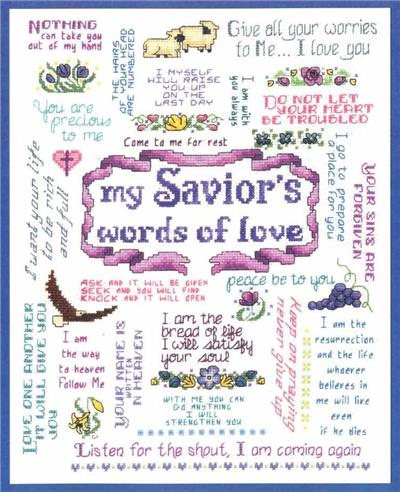 NOTHING
can take you
out of my hand
THE HAIRS
OF YOUR HEAD
ARE NUMBERED
Give all your worries
to Me... I love you
I MYSELF
WILL RAISE
YOU UP
ON THE
LAST DAY
I am with
you always
DO NOT LET
YOUR HEART
BE TROUBLED
You are
precious
to me
Come to me for rest
I want your life
to be rich
and full
my Savior's
words of love
I go to prepare
a place for you
YOUR SINS ARE
FORGIVEN
ASK AND IT WILL BE GIVEN
SEEK AND YOU WILL FIND
KNOCK AND IT WILL OPEN
peace be to you
LOVE ONE ANOTHER
IT WILL GIVE YOU
JOY
I am
the way
to heaven
Follow Me
YOUR NAME IS
WRITTEN
IN HEAVEN
I am the
bread of life
I will satisfy
your soul
Keep on praying
never give up
I am the
resurrection
and the life
whoever
believes in
me will live
even
if he dies
WITH ME YOU CAN
DO ANYTHING
I WILL
STRENGTHEN YOU
Listen for the shout, I am coming again